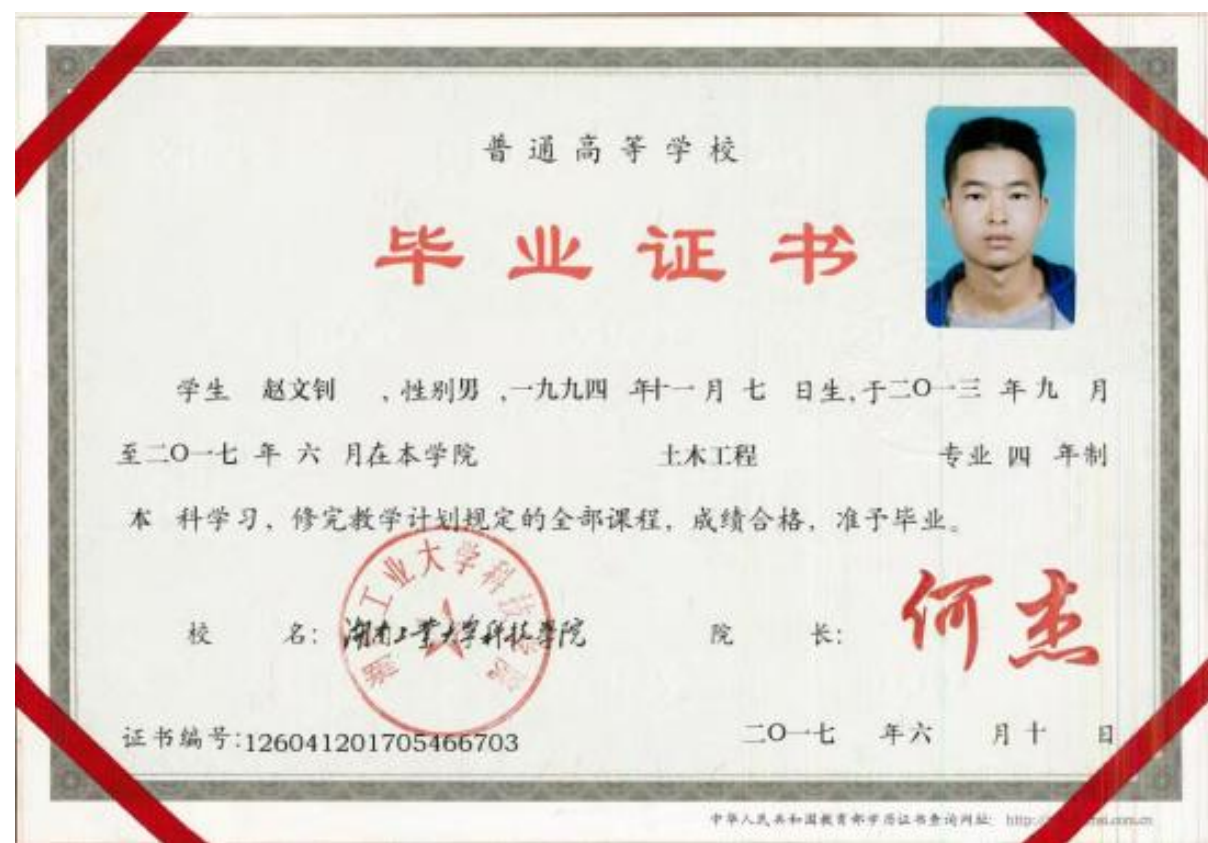 普通高等学校
毕业证书
学生 赵文钊 ，性别男 ，一九九四 年十一月 七 日生，于二〇一三 年 九 月
至二〇一七 年 六 月在本学院 土木工程 专业 四 年制
本 科学习，修完教学计划规定的全部课程，成绩合格，准予毕业。
湖南工业大学科技学院
校 名：湖南工业大学科技学院 院 长：何杰
证书编号：126041201705466703 二〇一七 年六 月十 日
中华人民共和国教育部学历证书查询网址： http://